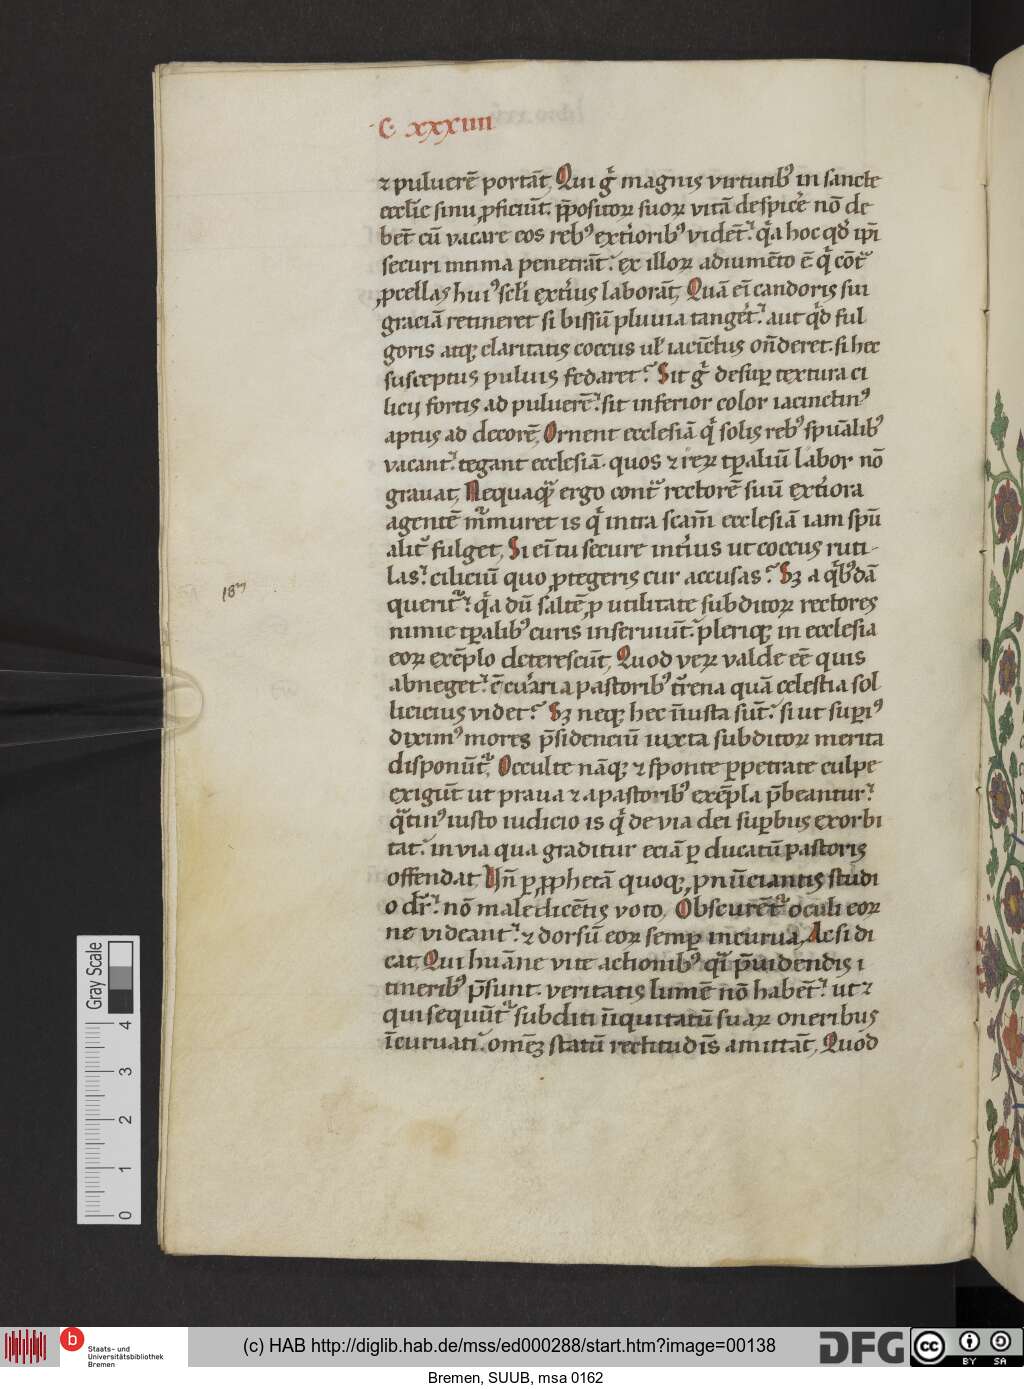 C. xxxiiii
⁊ puluerē portāt, Qui g̊ magnis virtutib⁹ in sancte
eccl̄ie sinu ꝓficiūt. p̄positoꝝ suoꝝ vitā despicē nō de
bēt cū vacare eos reb⁹ exteriorib⁹ vidēt. q̄a hoc qd̛ ip̄i
securi intima penetrāt. ex illoꝝ adiumēto ē q̄ cōtͣ
ꝓcellas hui⁹ scl̄i extius laborāt, Quā eī candoris sui
graciā retineret si bissū pluuia tangēt. aut q̄d ful
goris atq; claritatis coccus ul̛ iacīctus on̄deret. si hec
susceptus puluis fedaret? Sit g̊ desup̱ textura ci
licij fortis ad puluerē. sit inferior color iacinctin⁹
aptus ad decorē, Ornent ecclesiā q̄ solis reb⁹ spūalib⁹
vacant. tegant ecclesiā. quos ⁊ reꝝ tp̱aliū labor nō
grauat, Nequaq̄ ergo contͣ rectorē suū extiora
agentē mͬmuret is q̄ intra scam̄ ecclesiā iam spū
alit͛ fulget, Si eī tu secure intius ut coccus ruti-
las. ciliciū quo ꝓtegeris cur accusas? Sꝫ a q̄b⁹dā
querit͛. q̄a dū saltē ꝓ utilitate subditoꝝ rectores
nimie tp̱alib⁹ curis inseruiūt. pleriq; in ecclesia
eoꝝ exēplo deterescūt, Quod veꝝ valde eē quis
abneget. ē cū ari a pastorib⁹ t̄rena quā celestia sol
licicius videt? Sꝫ neq; hec īiusta sūt. si ut sup̱i⁹
dixim⁹ mores p̄sidenciū iuxta subditoꝝ merita
disponūt͛, Occulte nāq; ⁊ sponte p̱petrate culpe
exigūt. ut praua ⁊ a pastorib⁹ exēpla p̄beantur.
q̄tin⁹ iusto iudicio is q̄ de via dei sup̱bus exorbi
tat. in via qua graditur eciā p̱ ducatū pastoris
offendat, Hn̄ p̱ ꝓphetā quoq; ꝓnūciantis studi
o dr̄. nō maledicētis voto, Obscurēt͛ oculi eoꝝ
ne videant. ⁊ dorsū eoꝝ semp̱ incurua, Ac si di
cat, Qui huāne vite actionib⁹ q̄i p̄uidendis i
tinerib⁹ p̄sunt. veritatis lumē nō habēt. ut ⁊
qui sequūt͛ subditi īiquitatū suaꝝ oneribus
īcuruati. omēꝫ statū rectitudīs amittāt, Quod
18
Gray Scale
4
3
2
1
0
Staats- und
Universitätsbibliothek
Bremen
(c) HAB http://diglib.hab.de/mss/ed000288/start.htm?image=00138
DFG
cc
BY SA
Bremen, SUUB, msa 0162